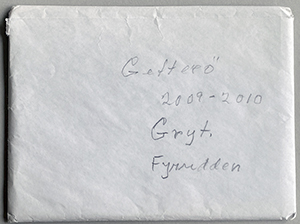 Getterö
2009-2010
Gryt.
Fyrudden